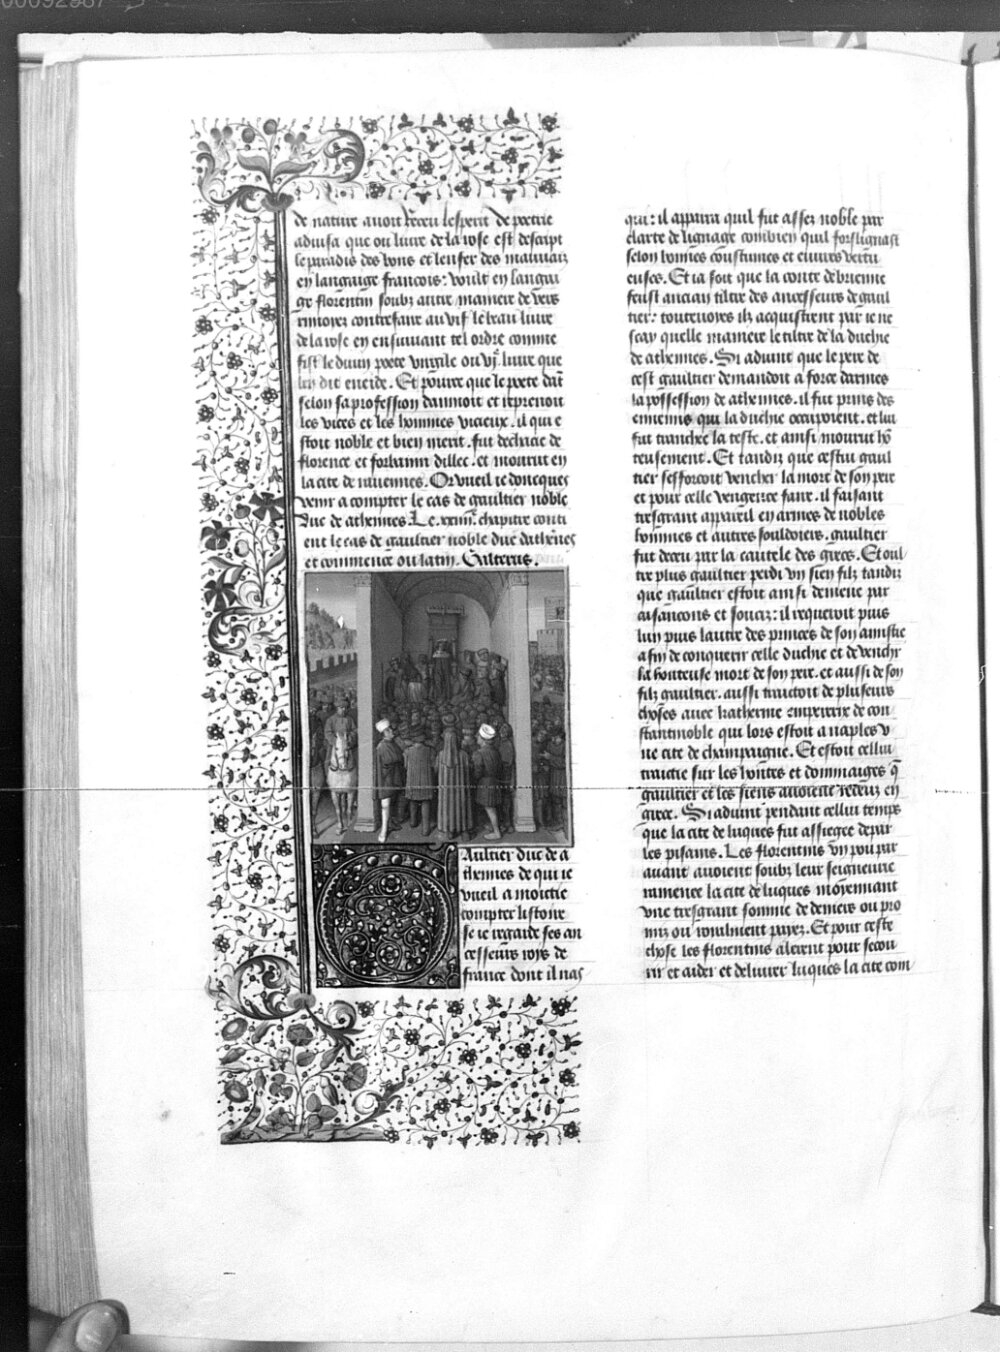 00092987
de nature auoit receu lesperit de poetrie
aduisa que ou liure de la rose est descript
le paradis des bons et lenfer des mauuaiz
en langaige francois: voult en langai
ge florentin soubz autre maniere de vers
rimoyez contrefaire au vif le beau liure
de la rose en ensuiuant tel ordre comme
fist le diuin poete virgile ou vj. liure que
len dit eneide. Et pource que le poete dāt
selon sa profession dampnoit et reprenoit
les vices et les hommes vicieux. il qui e
stoit noble et bien merit. fut dechacie de
florence et forbanni dillec. et mourut en
la cite de rauennes. Or vueil ie doncques
venir a compter le cas de gaultier noble
duc de athennes. Le .xxiiij. chapitre conti
ent le cas de gaultier noble duc dathenes
et commence ou latin. Galterus.
Aultier duc de a
thennes de qui ie
vueil a moictie
compter listoire
se ie regarde ses an
cesseurs roys de
france dont il nas
qui: il apparra quil fut assez noble par
clarte de lignage combien quil forslignast
selon bonnes coustumes et euures vertu
euses. Et ia soit que la conte de brienne
feust ancian tiltre des ancesseurs de gaul
tier: toutesuoies ilz acquistrent par ie ne
scay quelle maniere le tiltre de la duchie
de athennes. Si aduint que le pere de
cest gaultier demandoit a force darmes
la possession de athennes. il fut prins des
ennemis qui la duchie occupoient. et lui
fut tranchee la teste. et ainsi mourut hō
teusement. Et tandiz que cestui gaul
tier sefforcoit vencher la mort de son pere
et pour celle vengence faire. il faisant
tresgrant appareil en armes de nobles
hommes et autres souldoiers. gaultier
fut deceu par la cautele des grecs. Et oul
tre plus gaultier perdi vn sien filz tandiz
que gaultier estoit ainsi demene par
cusancons et souciz: il requeroit puis
lun puis lautre des princes de son amistie
afin de conquerir celle duchie et de vencher
la honteuse mort de son pere. et aussi de son
filz gaultier. aussi traictoit de pluseurs
choses auec katherine empereix de con
stantinoble qui lors estoit a naples v
ne cite de champaigne. Et estoit cellui
traictie sur les hontes et dommaiges q̄
gaultier et les siens auoient receuz en
grece. Si aduint pendant cellui temps
que la cite de luques fut assiegee depar
les pisains. Les florentins vn pou par
auant auoient soubz leur seigneurie
ramence la cite de luques moyennant
vne tresgrant somme de deniers ou pro
mis ou royalment payez. Et pour ceste
chose les florentins alerent pour secou
rir et aider et deliurer luques la cite com